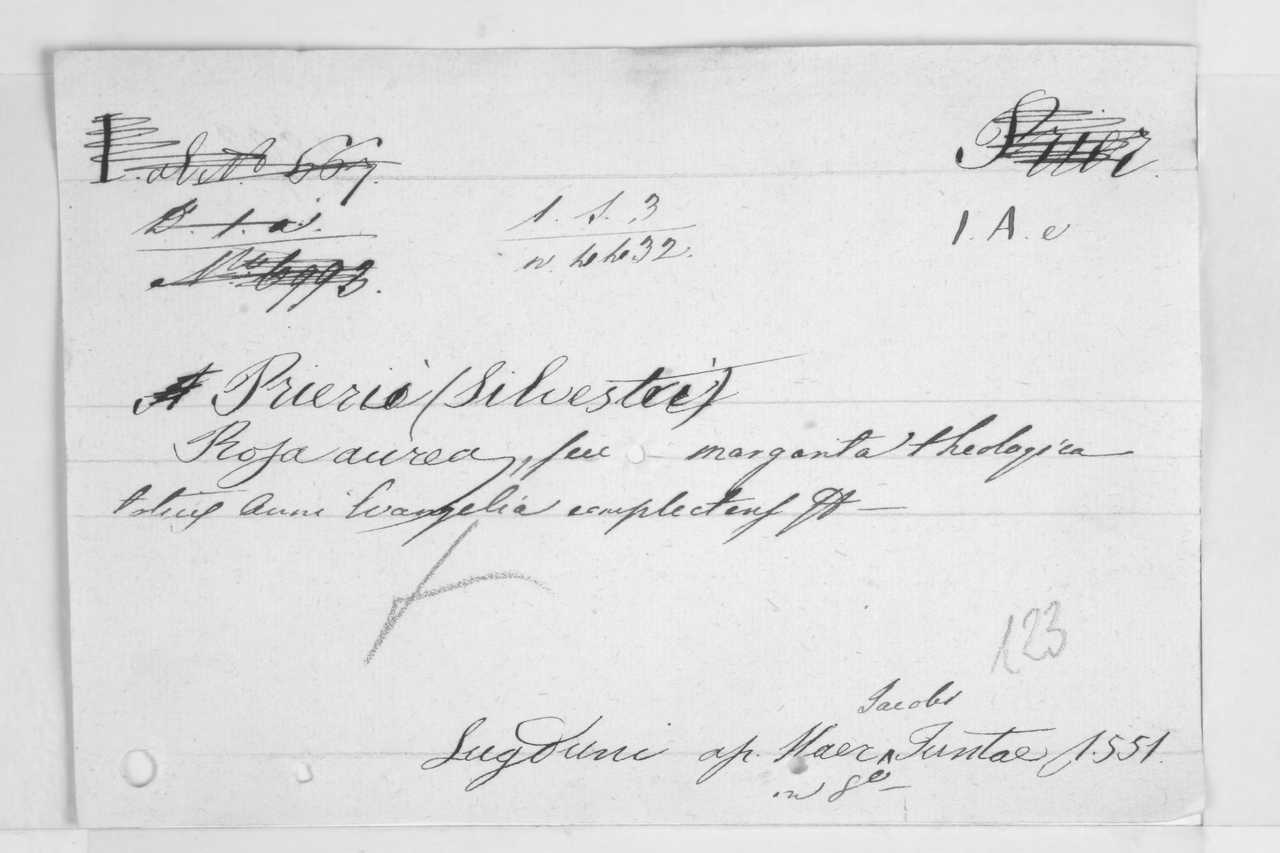 667.
Prier.
B. 1. a.
1. S. 3
1. A. e
No. 6993.
n. 4432.
Prierio (Silvestri)
Rosa aurea, seu margarita theologica
totius Anni Evangelia complectens &c —
123
Jacobi
Lugduni ap. Haer. Juntae 1551.
in 8o